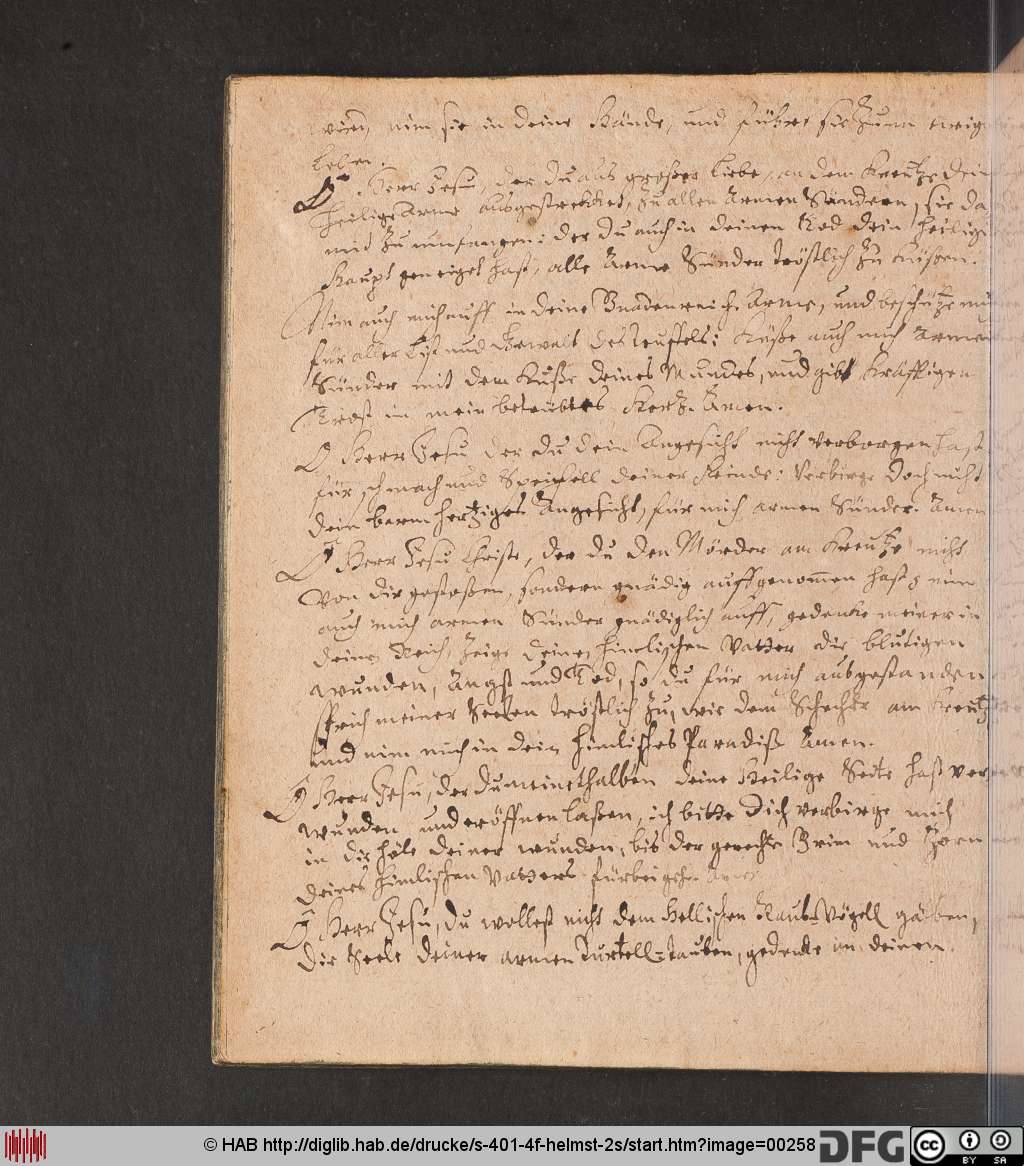 wird, nim sie in deine Hände, und führe sie zum ewig
Leben.
O Herr Jesu, der du aus großer Liebe, an dem Kreutze dein
heilige Arme ausgestrecket, zu allen Armen Sündern, sie da
mit zu umfangen: der du auch in deinen Tod dein heilig
Haupt geneiget hast, alle Arme Sünder tröstlich zu küßen.
Nim auch mich auff in deine Gnadenreich Arme, und beschütze mich
für aller List und Gewalt des Teuffels: Küße auch mich Armen
Sünder mit dem Kuße deines Mundes, und gibt Kräfftigen
Trost in mein betrübtes Hertz. Amen.
O Herr Jesu der du dein Angesicht nicht verborgen hast
für schmach und Speichell deiner Feinde: Verbirge doch nicht
dein barmhertziges Angesicht, für mich armen Sünder. Amen
O Herr Jesu Christe, der du den Mörder am Kreutze nicht
von dir gestoßen, sondern gnädig auffgenommen hast, nim
auch mich armen Sünder gnädiglich auff, gedenke meiner in
deine Reich, zeige deine himlischen Vatter die blutigen
wunden, Angst und Tod, so du für mich ausgestanden
sprich meiner Seelen tröstlich zu, wie dem Schecher am Kreutz
und nim mich in dein himlisches Paradiß Amen.
O Herr Jesu, der du meinethalben deine Heilige Seite hast ver
wunden und eröffnen laßen, ich bitte dich verbirge mich
in die höle deiner wunden, bis der gerechte Grim und Zorn
deines himlischen Vatters fürbei gehe. Amen
O Herr Jesu, du wollest nicht dem Hellischen Raub-Vögell gäben,
die Seele deiner armen Turtell-Tauben, gedenke an deinen
© HAB http://diglib.hab.de/drucke/s-401-4f-helmst-2s/start.htm?image=00258
DFG
cc
BY SA